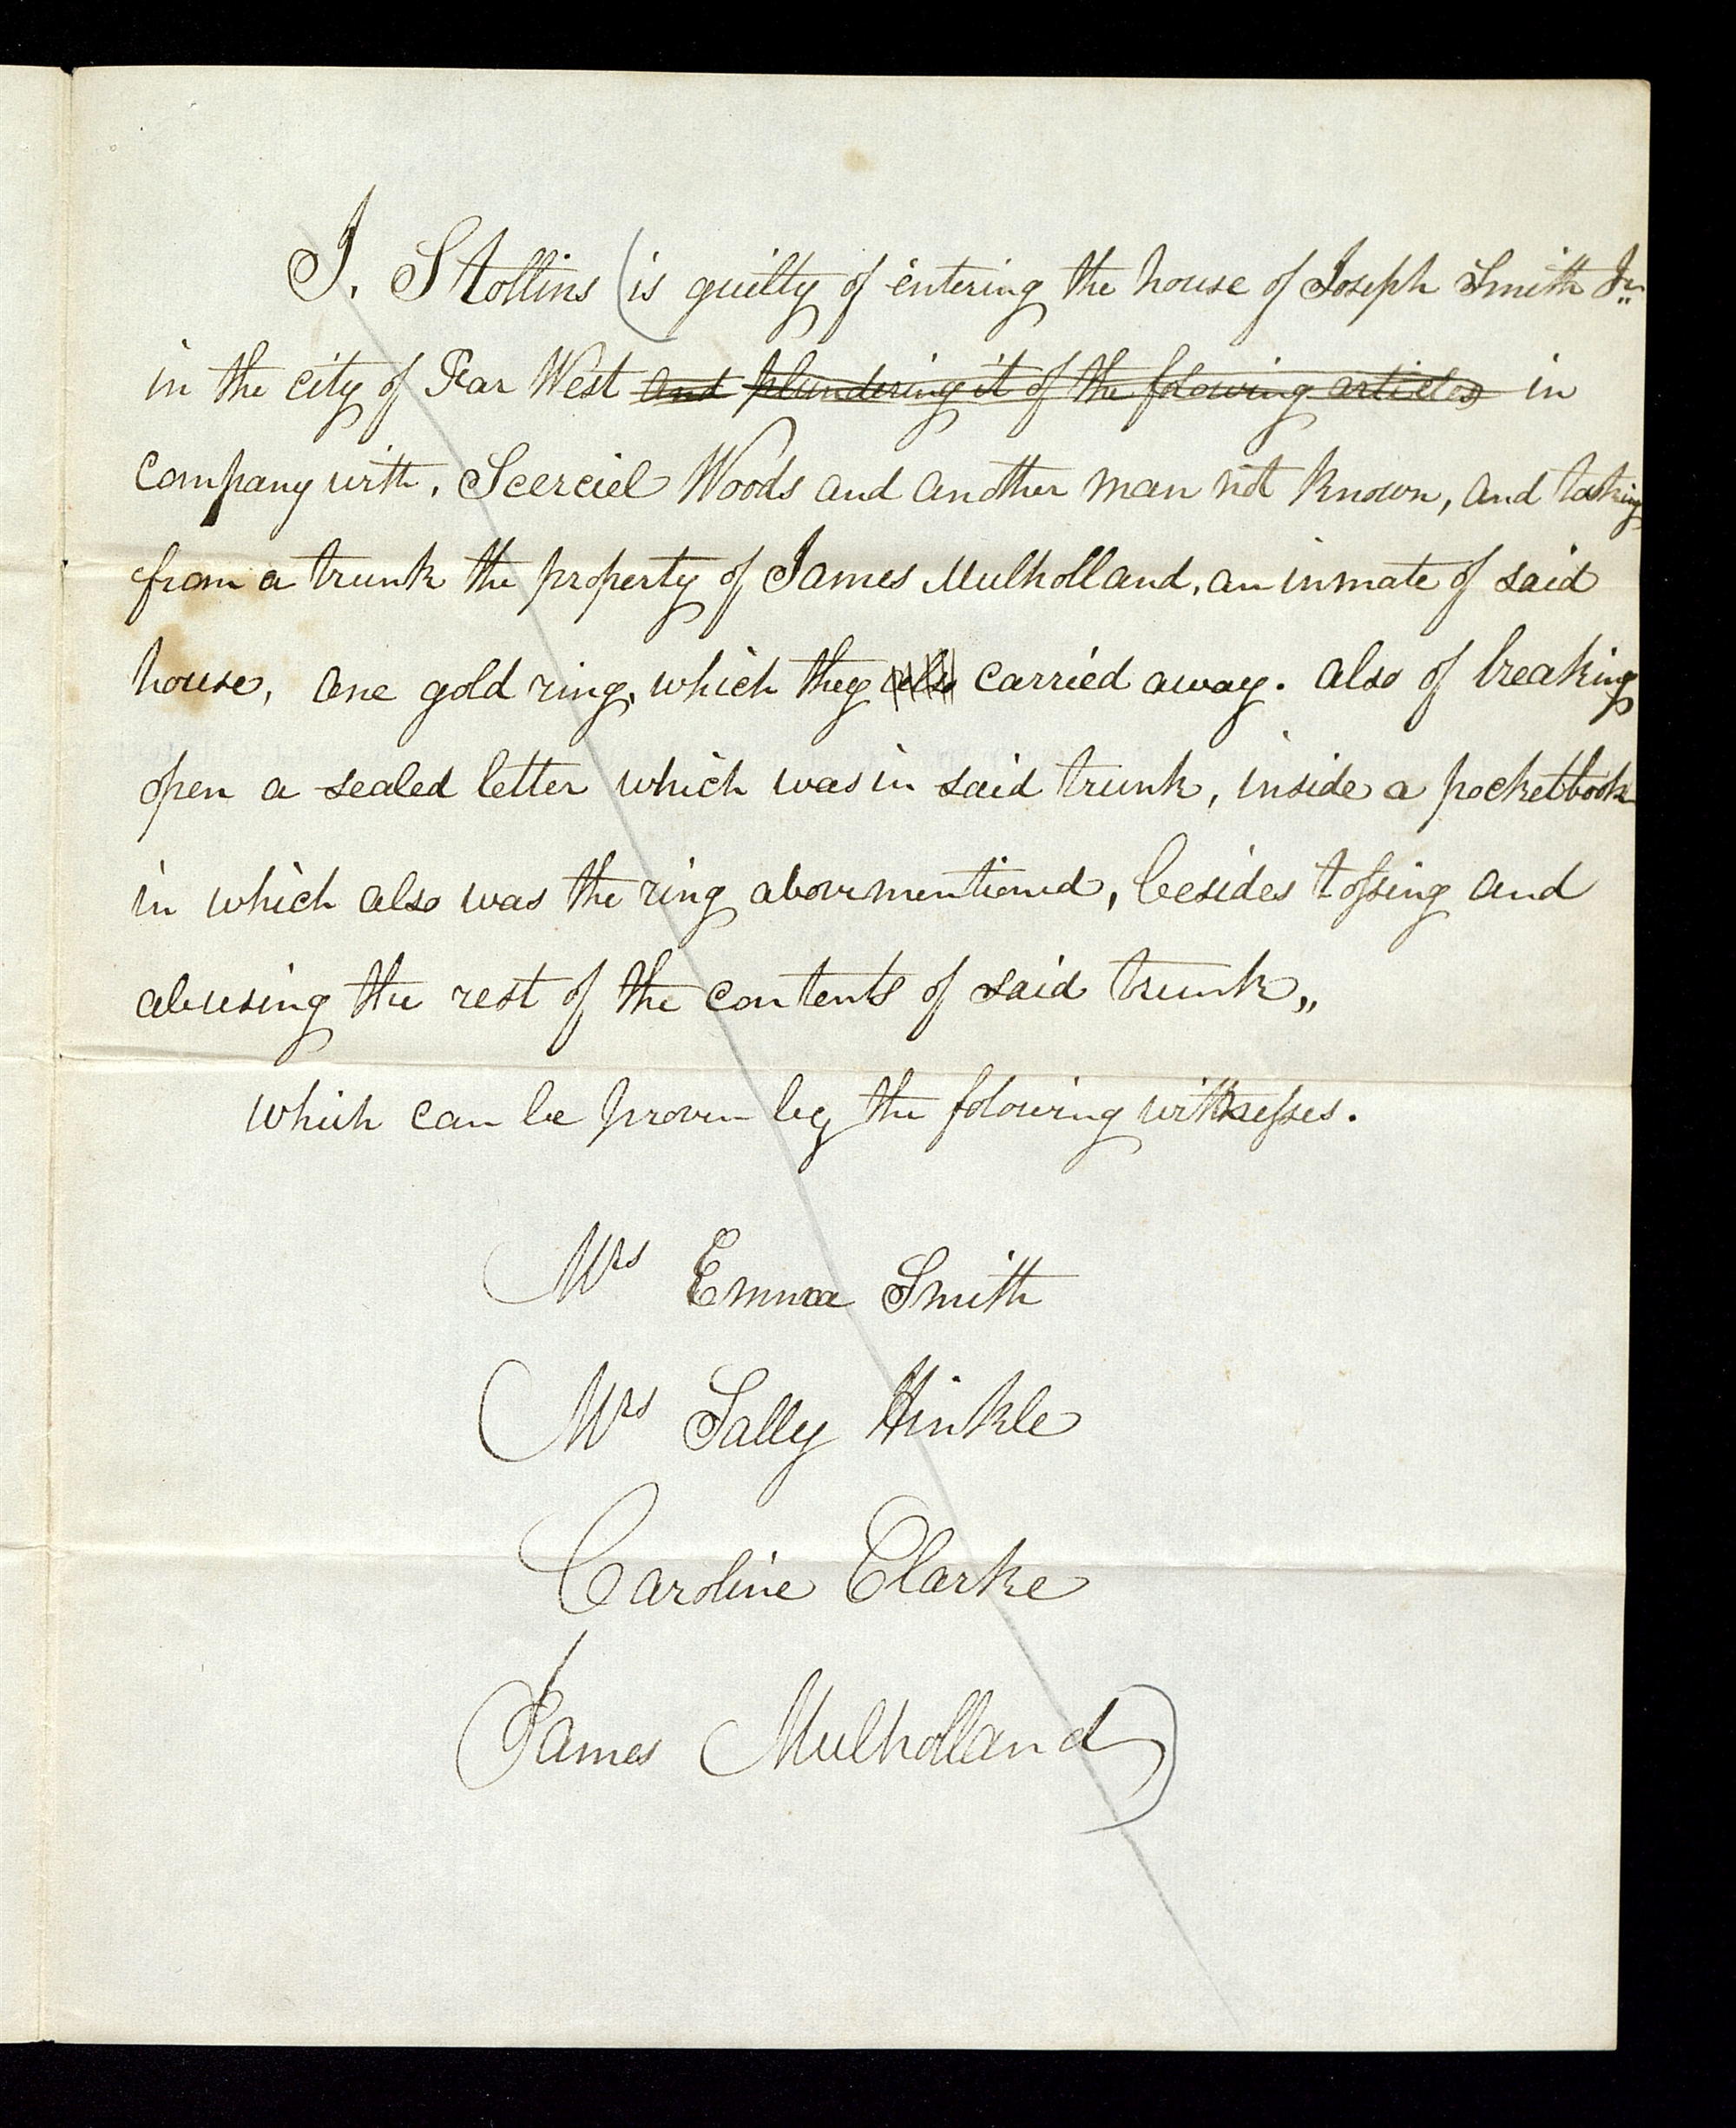 J. Stollins (is guilty of entering the house of Joseph Smith Jr
in the city of Far West and plundering it of the folowing articles in
company with, Scerciel Woods and another man not known, and taking
from a trunk the property of James Mulholland, an inmate of said
house, one gold ring, which they also carried away. also of breaking
open a sealed letter which was in said trunk, inside a pocketbook
in which also was the ring abovementioned, besides tossing and
abusing the rest of the contents of said trunk,,
which can be proven by the folowing witnesses.
Mrs Emma Smith
Mrs Sally Hinkle
Caroline Clarke
James Mulholland)